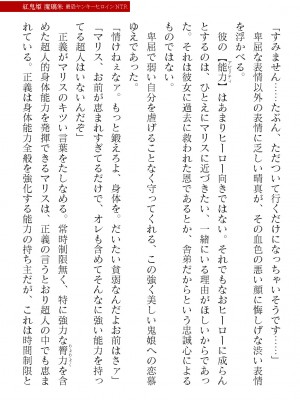 紅鬼姫 瑠璃朱 厳選ヤンキーヒロインNTR
「すみません……たぶん、ただついて行くだけになっちゃいそうです……」
卑屈な表情以外の表情に乏しい晴真が、その血色の悪い顔に悔しげな渋い表情
を浮かべる。
彼の【能力】はあまりヒーロー向きではない。それでもなおヒーローに成らん
とするのは、ひとえにマリスに近づきたい、一緒にいる理由がほしいからであっ
た。それは彼女に過去に救われた恩であるとか、舎弟だからという忠誠心による
ものではない。
卑屈で弱い自分を虐げることなく守ってくれる、この強く美しい鬼娘への恋慕
ゆえであった。
「情けねぇなァ。もっと鍛えろよ、身体を。だいたい貧弱なんだよお前はさァ」
「マリス、お前が恵まれすぎてるだけで、オレも含めてそんなに強い能力を持っ
てる超人はいないんだぞ」
正義がマリスのキツい言葉をたしなめる。常時制限無く、特に強力な膂力を含
めた超人的身体能力を発揮できるマリスは、正義の言うとおり超人の中でも恵ま
れている。正義は身体能力全般を強化する能力の持ち主だが、これは時間制限と